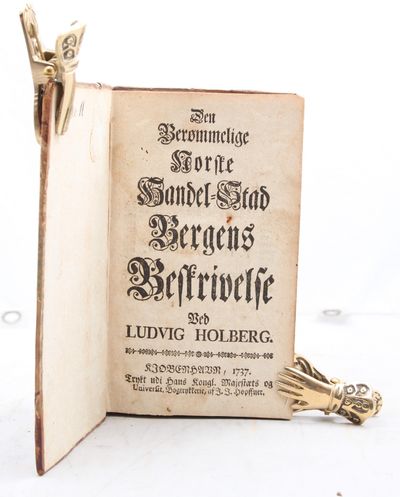 Den
Berømmelige
Norske
Handel-Stad
Bergens
Beskrivelse
Ved
LUDVIG HOLBERG.
KJØBENHAVN, 1737.
Trykt udi Hans Kongl. Majestæts og
Universit. Bogtrykkerie, af J. J. Höpffner.